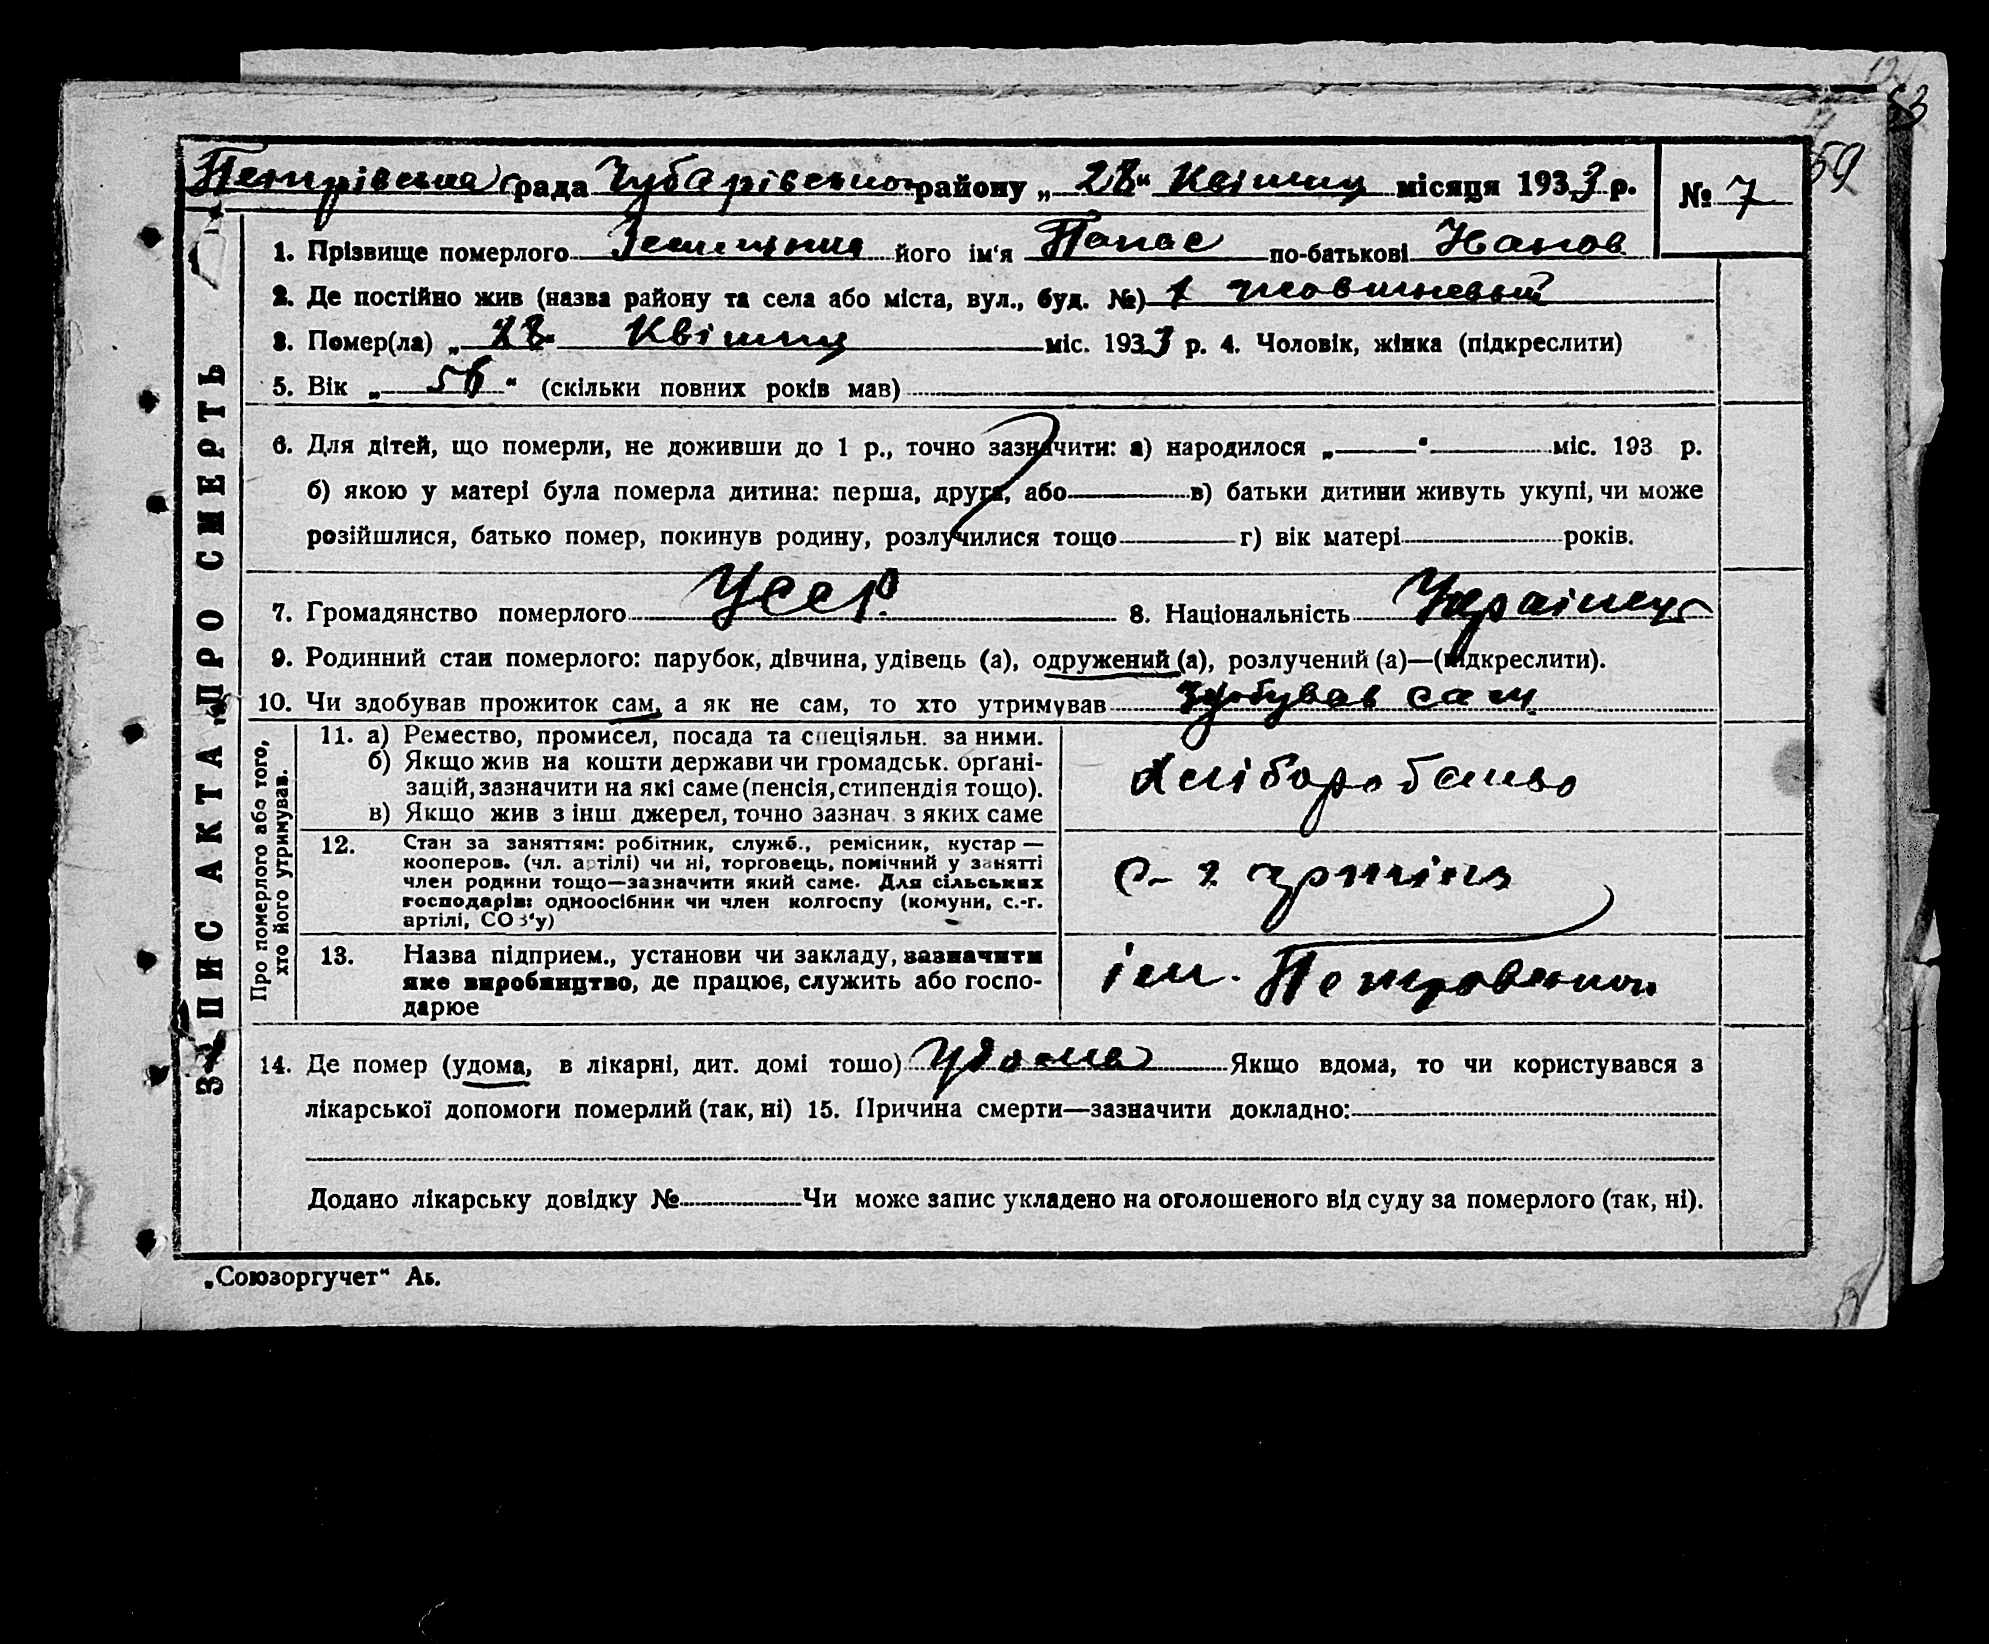 53
59
Петрівська срада Чубарівського району „28“ Квітня місяця 1933 р. № 7
ЗАПИС АКТА ПРО СМЕРТЬ
1. Прізвище померлого його ім'я Панас по-батькові
2. Де постійно жив (назва району та села або міста, вул., буд. №)
3. Помер(ла) „28“ Квітня міс. 1933 р. 4. Чоловік, жінка (підкреслити)
5. Вік „56“ (скільки повних років мав)
6. Для дітей, що померли, не доживши до 1 р., точно зазначити: а) народилося „ “ міс. 193 р.
б) якою у матері була померла дитина: перша, друга, або в) батьки дитини живуть укупі, чи може
розійшлися, батько помер, покинув родину, розлучилися тощо г) вік матері років.
7. Громадянство померлого УССР. 8. Національність Українець
9. Родинний стан померлого: парубок, дівчина, удівець (а), одружений (а), розлучений (а)—(підкреслити).
10. Чи здобував прожиток сам, а як не сам, то хто утримував здобував сам
Про померлого або того, хто його утримував.
11. а) Ремество, промисел, посада та спеціяльн. за ними.
б) Якщо жив на кошти держави чи громадськ. орґані-
зацій, зазначити на які саме (пенсія, стипендія тощо).
в) Якщо жив з інш джерел, точно зазнач. з яких саме
Хліборобство
12. Стан за заняттям: робітник, служб., ремісник, кустар —
кооперов. (чл. артілі) чи ні, торговець, помічний у занятті
член родини тощо—зазначити який саме. Для сільських
господарів: одноосібник чи член колгоспу (комуни, с.-г.
артілі, СОЗ'у)
С-г артіль
13. Назва підприєм., установи чи закладу, зазначити
яке виробництво, де працює, служить або госпо-
дарює
ім. Петровського
14. Де помер (удома, в лікарні, дит. домі тошо) удома Якщо вдома, то чи користувався з
лікарської допомоги померлий (так, ні) 15. Причина смерти—зазначити докладно:
Додано лікарську довідку № Чи може запис укладено на оголошеного від суду за померлого (так, ні).
„Союзоргучет“ Аб.